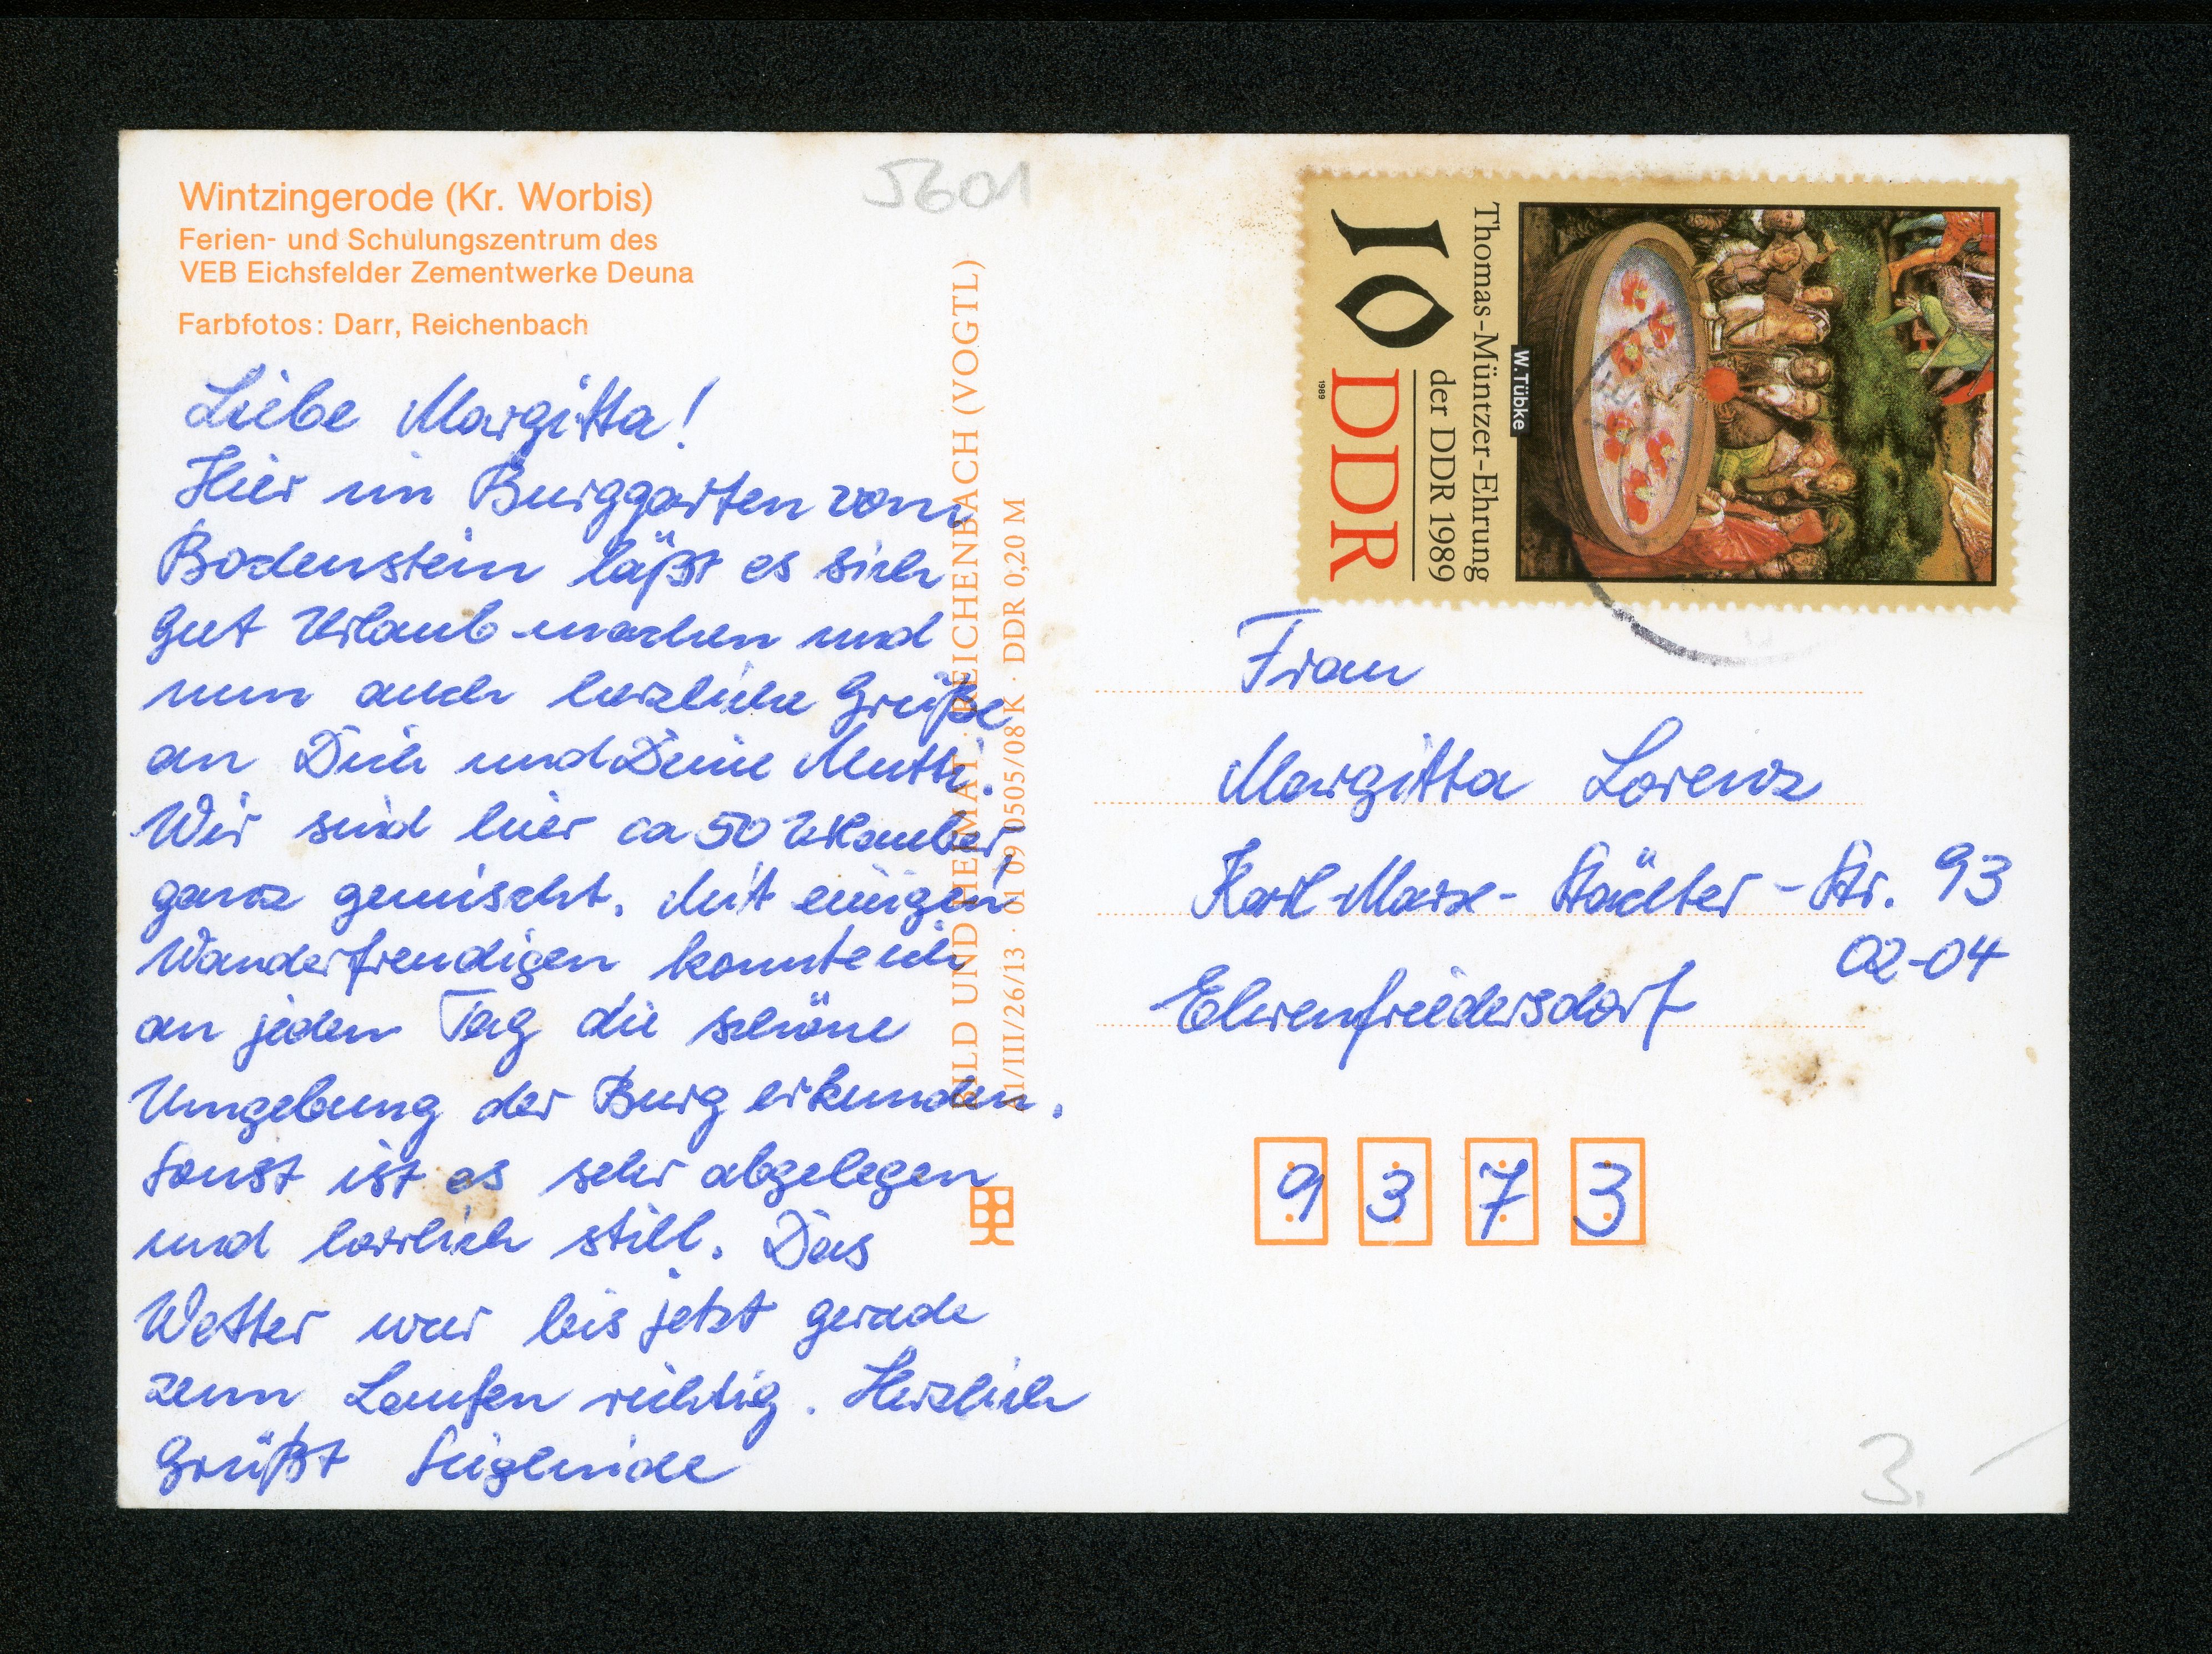 Wintzingerode (Kr. Worbis)
Ferien- und Schulungszentrum des
VEB Eichsfelder Zementwerke Deuna
Farbfotos: Darr, Reichenbach
5601
Liebe Margitta!
Hier im Burggarten vom
Bodenstein läßt es sich
gut Urlaub machen und
nun auch herzliche Grüße
an Dich und Deine Mutti.
Wir sind hier ca 50 Urlauber,
ganz gemischt. Mit einigen
Wanderfreudigen konnte ich
an jeden Tag die schöne
Umgebung der Burg erkunden.
Sonst ist es sehr abgelegen
und herrlich still. Das
Wetter war bis jetzt gerade
zum Laufen richtig. Herzlich
grüßt Sieglinde
BILD UND HEIMAT · REICHENBACH (VOGTL)
A1/III/26/13 · 01 09 0505/08 K · DDR 0,20 M
10 DDR
1989
Thomas-Müntzer-Ehrung
der DDR 1989
W.Tübke
Frau
Margitta Lorenz
Karl-Marx-Städter-Str. 93
02-04
Ehrenfriedersdorf
9 3 7 3
3.-